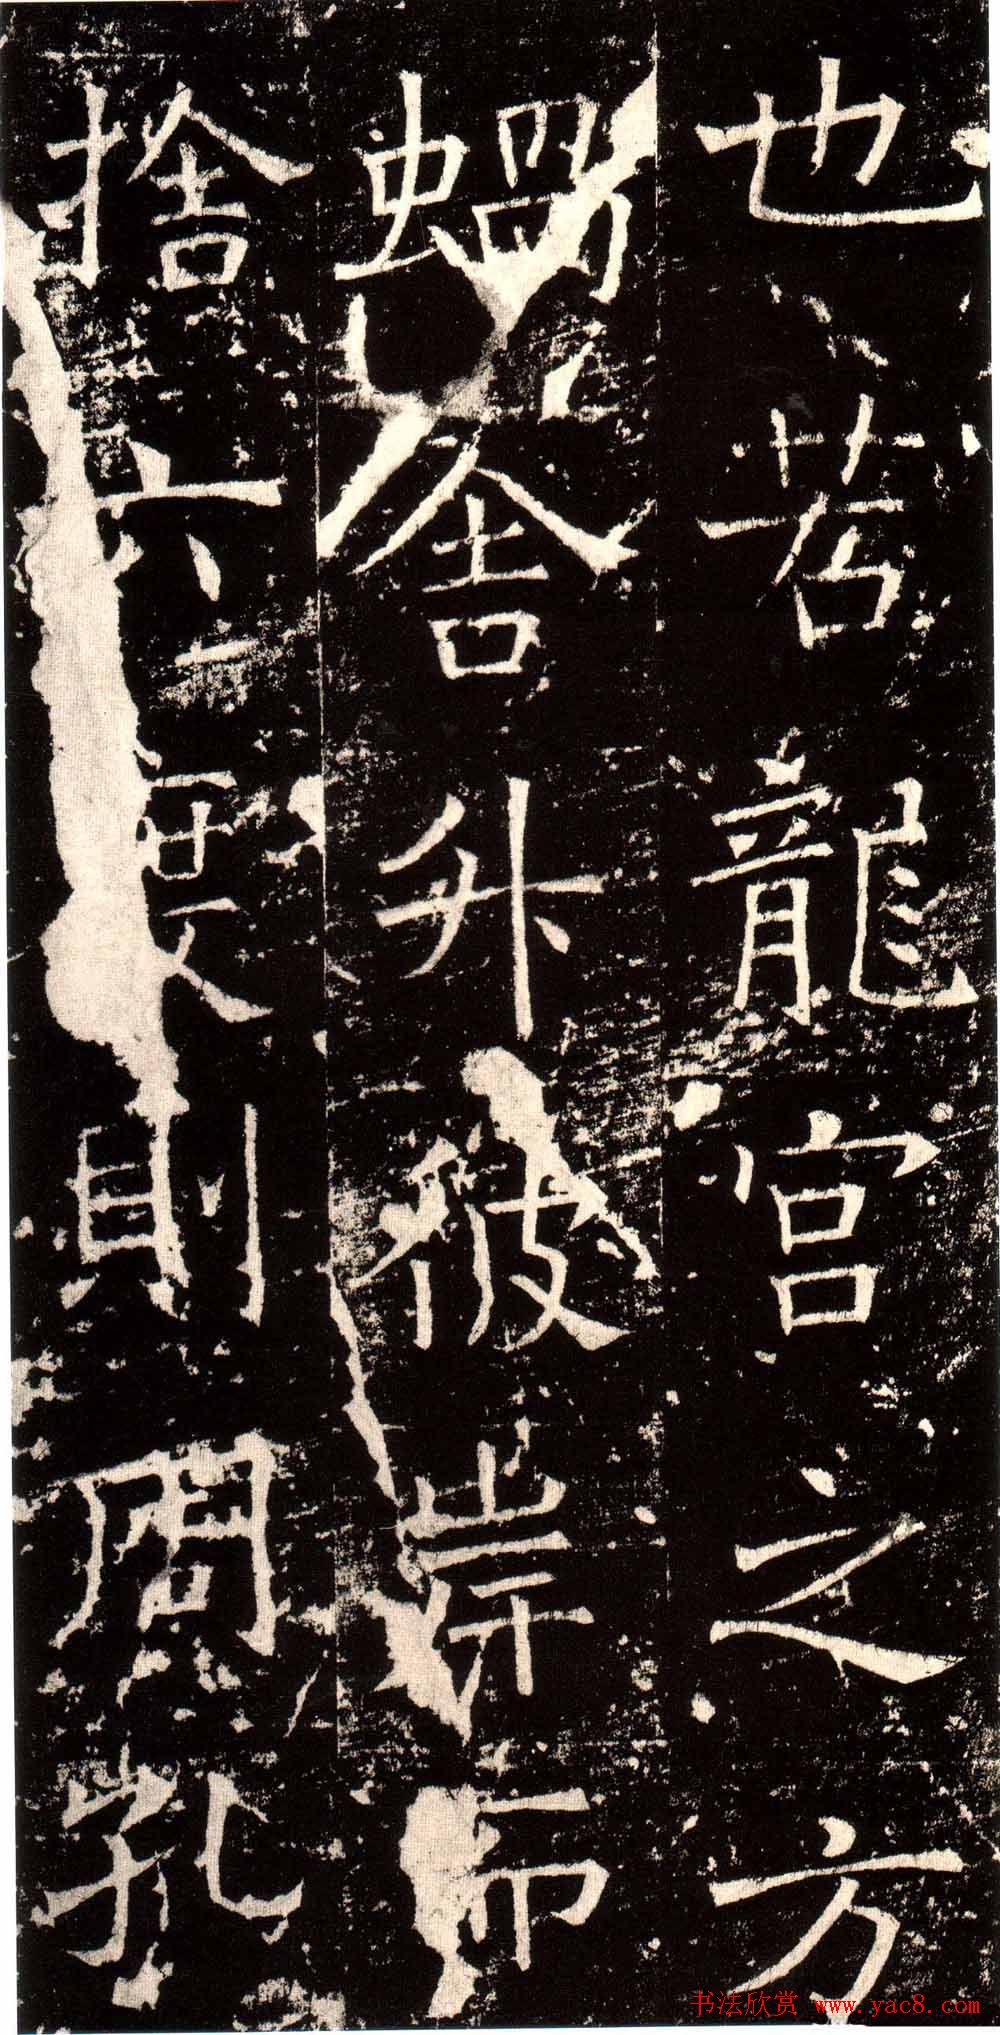 也若龍宮之方
蝸舍升彼岸而
捨六度則周孔
书法欣赏 www.yac8.com